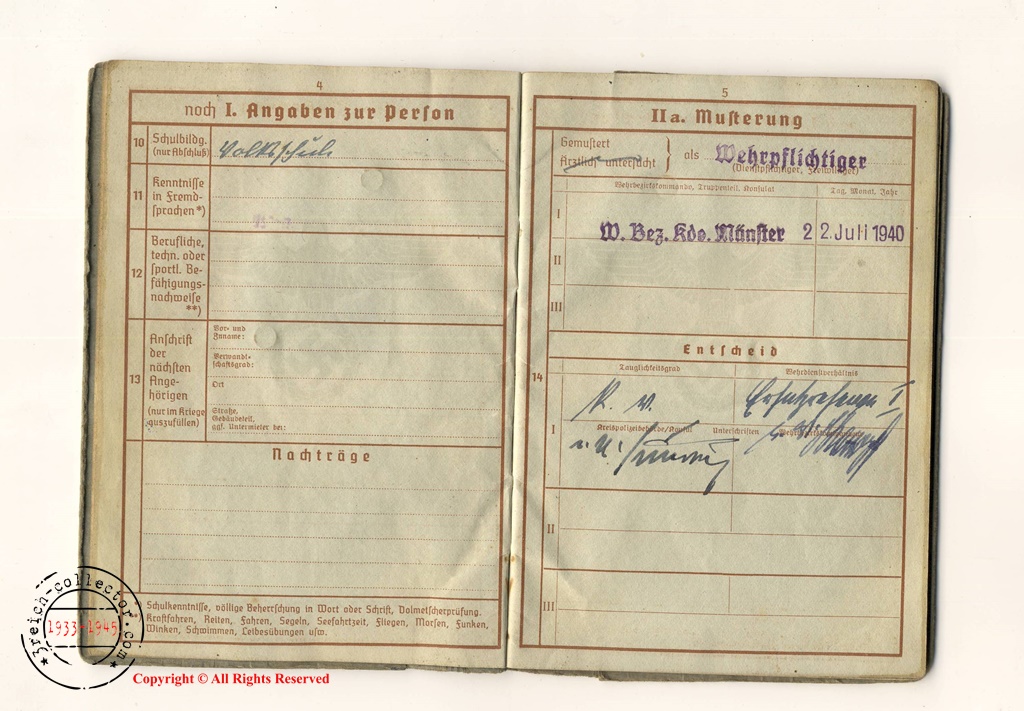 4
noch I. Angaben zur Person
10 Schulbildg. (nur Abschluß)
Volksschule
11 Kenntnisse in Fremd-
sprachen*)
12 Berufliche,
techn. oder
sportl. Be-
fähigungs-
nachweise
**)
13 Anschrift
der
nächsten
Ange-
hörigen
(nur im Kriege
auszufüllen)
Vor- und
Zuname:
Verwandt-
schaftsgrad:
Ort
Straße,
Gebäudeteil,
ggf. Untermieter bei:
Nachträge
Schulkenntnisse, völlige Beherrschung in Wort oder Schrift, Dolmetscherprüfung.
Kraftfahren, Reiten, Fahren, Segeln, Seefahrtzeit, Fliegen, Morsen, Funken,
Winken, Schwimmen, Leibesübungen usw.
5
IIa. Musterung
Gemustert
Ärztlich untersucht
als Wehrpflichtiger
(Dienstpflichtiger, Freiwilliger)
Wehrbezirkskommando, Truppenteil, Konsulat
Tag, Monat, Jahr
I
W. Bez. Kdo. Münster 22. Juli 1940
II
III
Entscheid
14
Tauglichkeitsgrad
Wehrdienstverhältnis
k. v.
Ersatzreserve I
I
Kreispolizeibehörde/Konsul
Unterschriften
II
III
3reich-collector.com
1933-1945
Copyright © All Rights Reserved